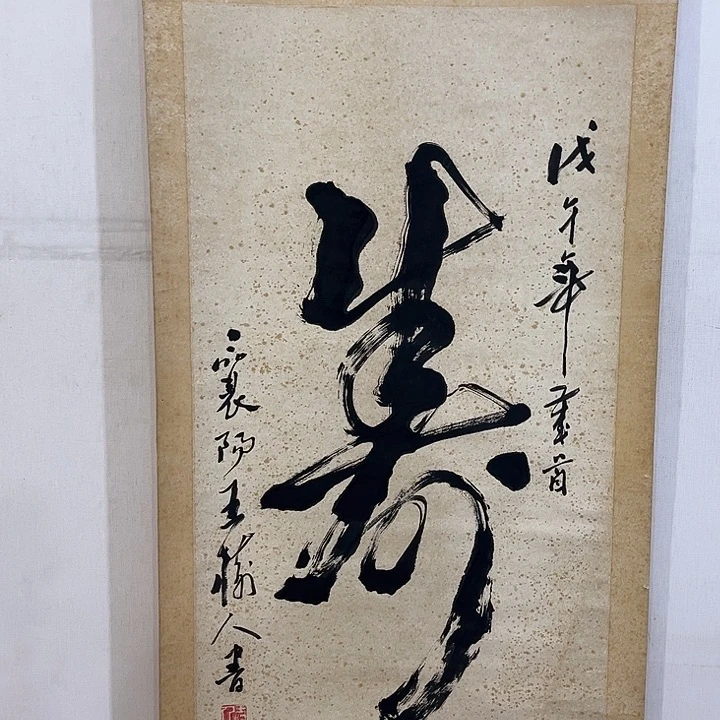 戊午年歲首
壽
襄陽王樹人書